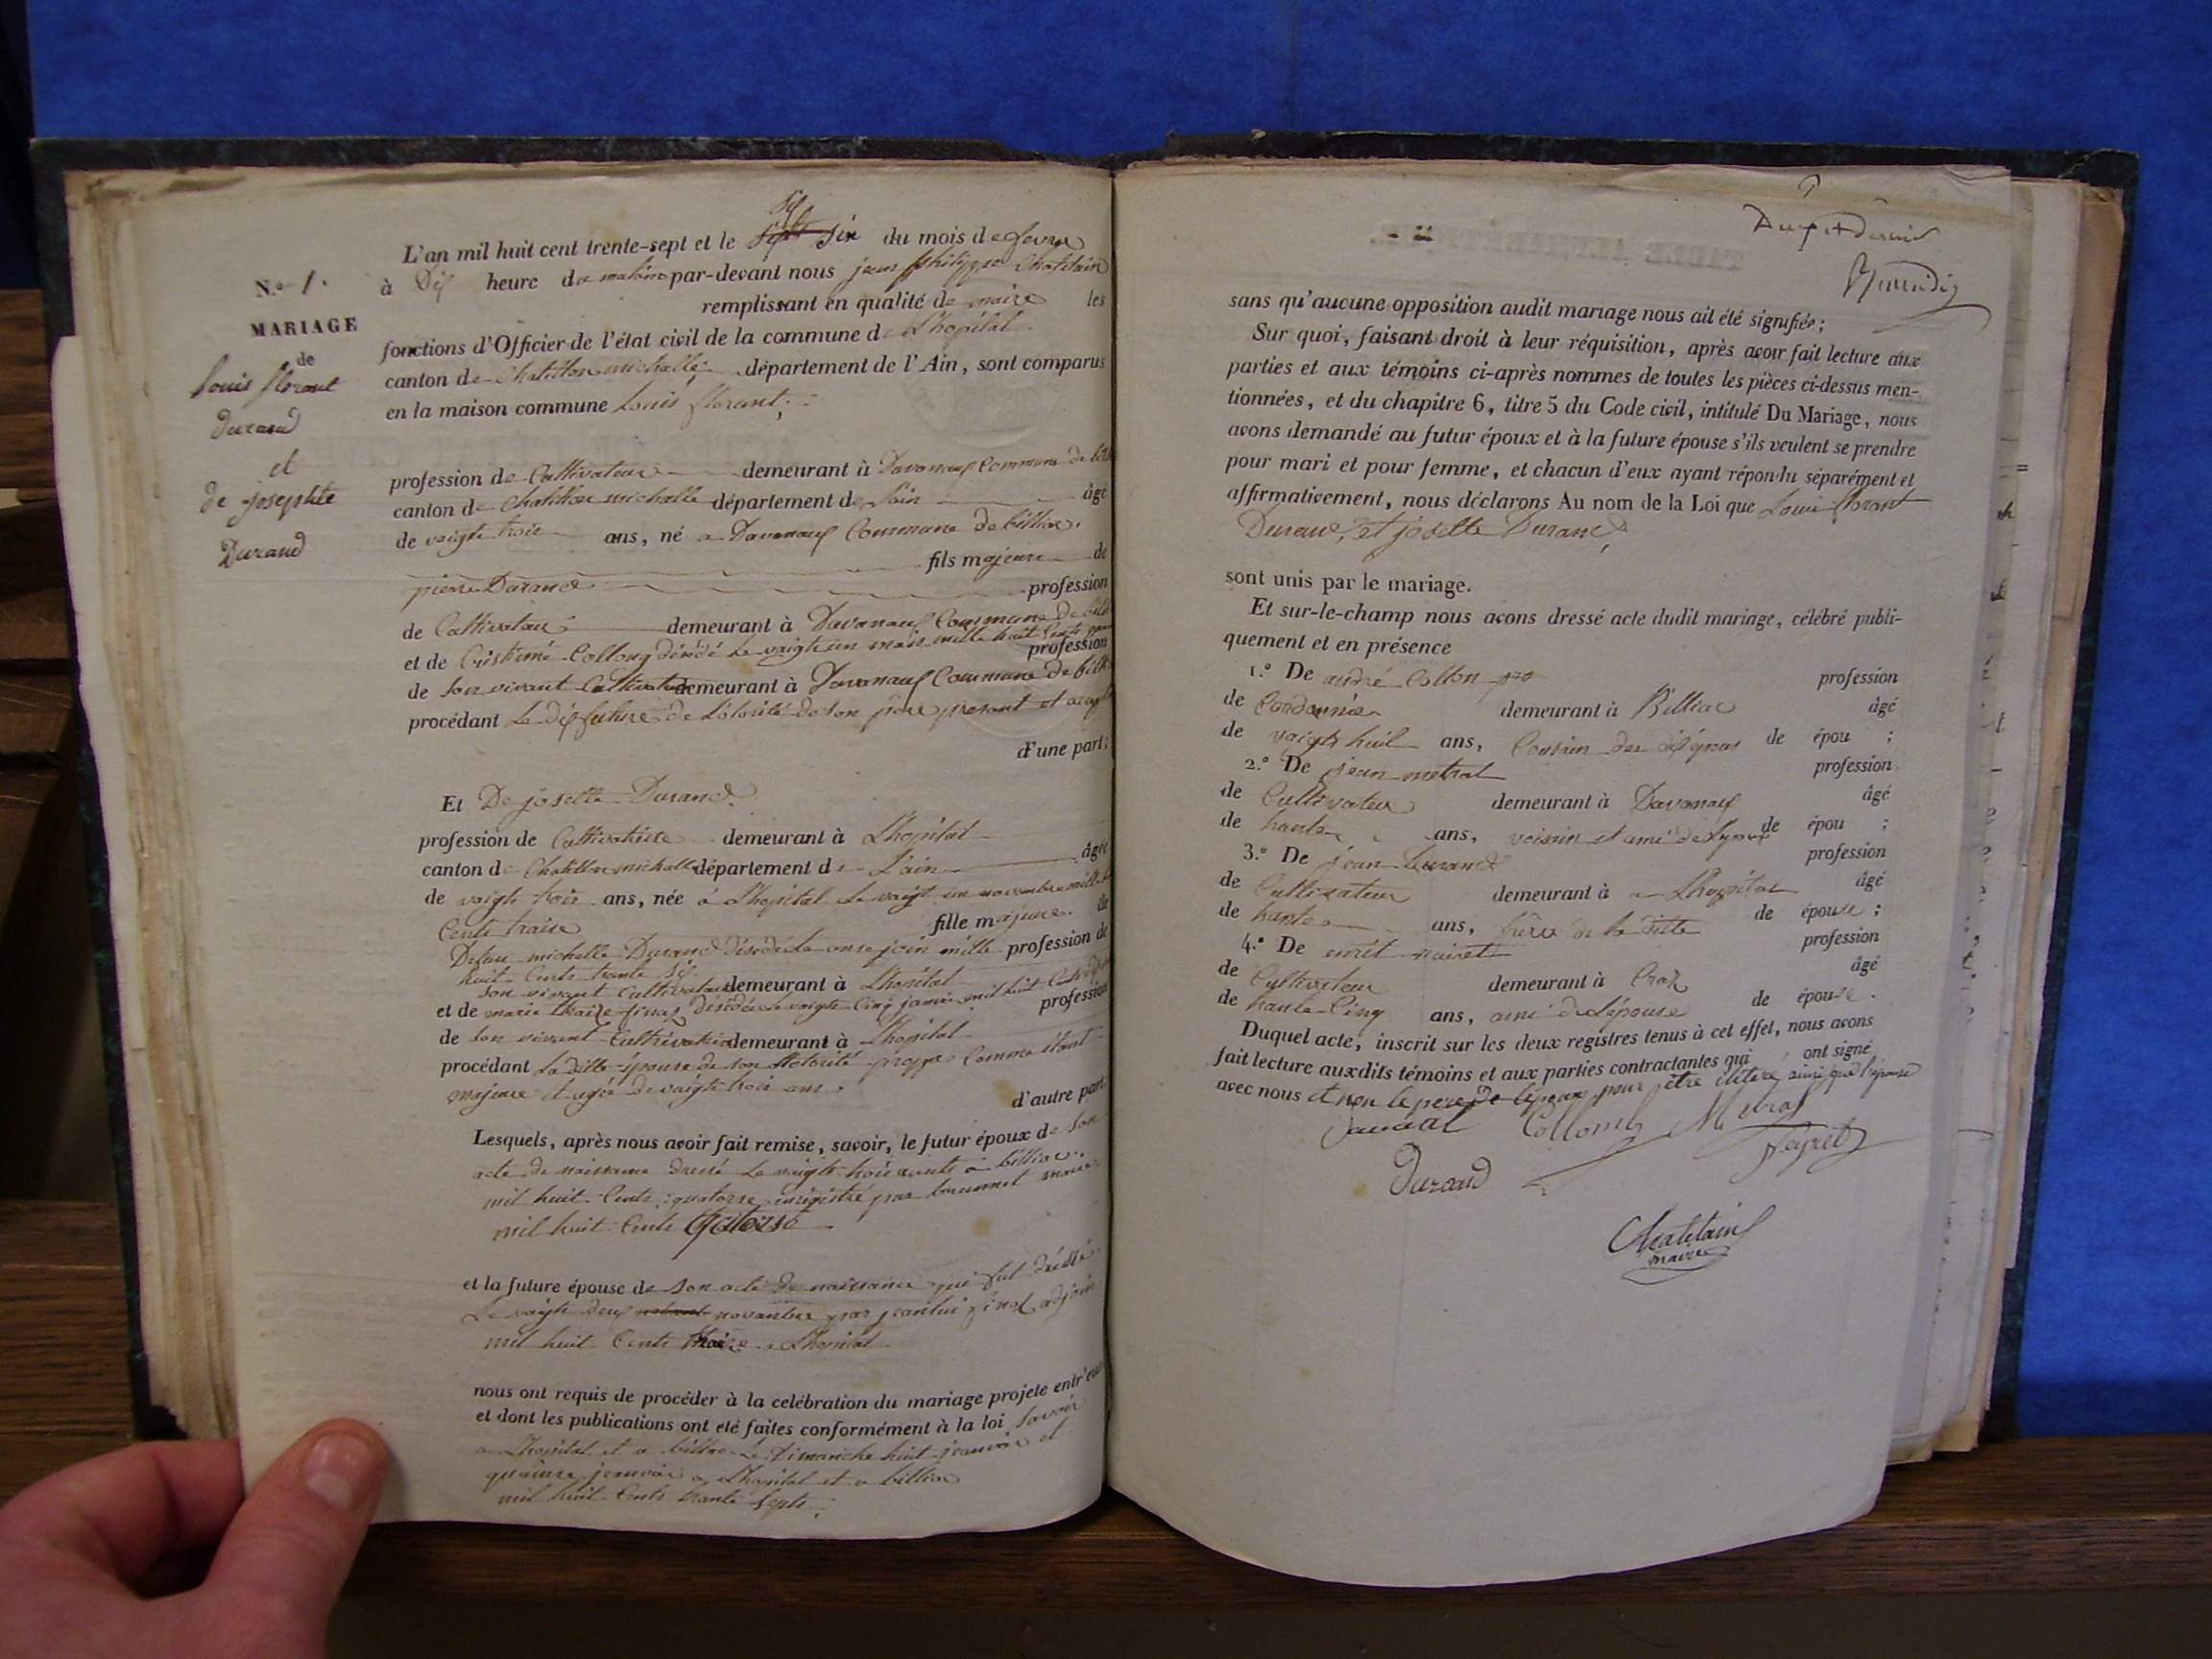 N.° 1.
MARIAGE
de
Louis florant
durand
et
de josephte
Durand
L'an mil huit cent trente-sept et le six du mois de fevrie
à Dix heure du matin par-devant nous jean philippe Chatelain
remplissant en qualité de maire les
fonctions d'Officier de l'état civil de la commune de L'hopital
canton de Chatillon michaille département de l'Ain, sont comparus
en la maison commune Louis florant,
profession de Cultivateur demeurant à Davanoux Commune de
canton de Chatillon michalle département de Lain âgé
de vaigts trois ans, né a Davanoux Commune de billiac.
fils majeure de
pierre Durand profession
de Cultivateur demeurant à Davanoux Commune de
et de Collong décédé Le vaigt un mars mille huit Cents
profession
de son vivant Cultivatrice demeurant à Davanoux Commune de
procédant Le dis future de son père présent et
d'une part;
Et De josette Durand.
profession de Cultivatrice demeurant à L'hopital
canton de Chatillon michalle département de L'ain âgée
de vaigts trois ans, née à L'hopital Le vaigt un novembre mille
Cents traise fille majeure de
Defeu michelle Durand décédé Le onse join mille profession de
huit Cents trante six
son vivant Cultivateur demeurant à L'hopital
et de marie décédée Le vaigts Cinq janvie mil huit Cents
profession
de son vivant Cultivatrice demeurant à L'hopital
procédant La ditte épouse de son propre Comme étant
majeure et agée de vaigts trois ans.
d'autre part.
Lesquels, après nous avoir fait remise, savoir, le futur époux de son
acte de naissance dressé Le vaigts trois a billiac.
mil huit Cents quatorse enregistré par maire
mil huit Cents Quatorse
et la future épouse de son acte de naissance qui fut dréssé
Le vaigts deux novembre par jeanlui pinal adjoin
mil huit Cents traize a L'hopital
nous ont requis de procéder à la celébration du mariage projete entr'eux
et dont les publications ont été faites conformément à la loi savoir
a L'hopital et a billiac Le Dimanche huit jeanvie et
quainse jeanvie a L'hopital et a billiac
mil huit Cents trante septs.
sans qu'aucune opposition audit mariage nous ait été signifiée;
Sur quoi, faisant droit à leur réquisition, après avoir fait lecture aux
parties et aux témoins ci-après nommes de toutes les pièces ci-dessus men-
tionnées, et du chapitre 6, titre 5 du Code civil, intitulé Du Mariage, nous
avons demandé au futur époux et à la future épouse s'ils veulent se prendre
pour mari et pour femme, et chacun d'eux ayant répondu séparément et
affirmativement, nous déclarons Au nom de la Loi que Louis florant
Durand, et josette Durand,
sont unis par le mariage.
Et sur-le-champ nous avons dressé acte dudit mariage, célébré publi-
quement et en présence
1.° De andré Collon profession
de Cordonnier demeurant à Billiac âgé
de vaigts huit ans, Cousin de époux ;
2.° De jean metral profession
de Cultivateur demeurant à Davanoux âgé
de trante ans, voisin et ami de Lépoux de épou ;
3.° De jean Durand profession
de Cultivateur demeurant à a L'hopital âgé
de trante ans, frère de la ditte de épouse ;
4.° De profession
de Cultivateur demeurant à Craz âgé
de trante Cinq ans, ami de L'épouse de épouse .
Duquel acte, inscrit sur les deux registres tenus à cet effet, nous avons
fait lecture auxdits témoins et aux parties contractantes qui ont signé
avec nous et non le pere de lépoux pour être illitéré ainsi que l'épouse
Durand Collomb Metral
Durand
Chatelain
maire